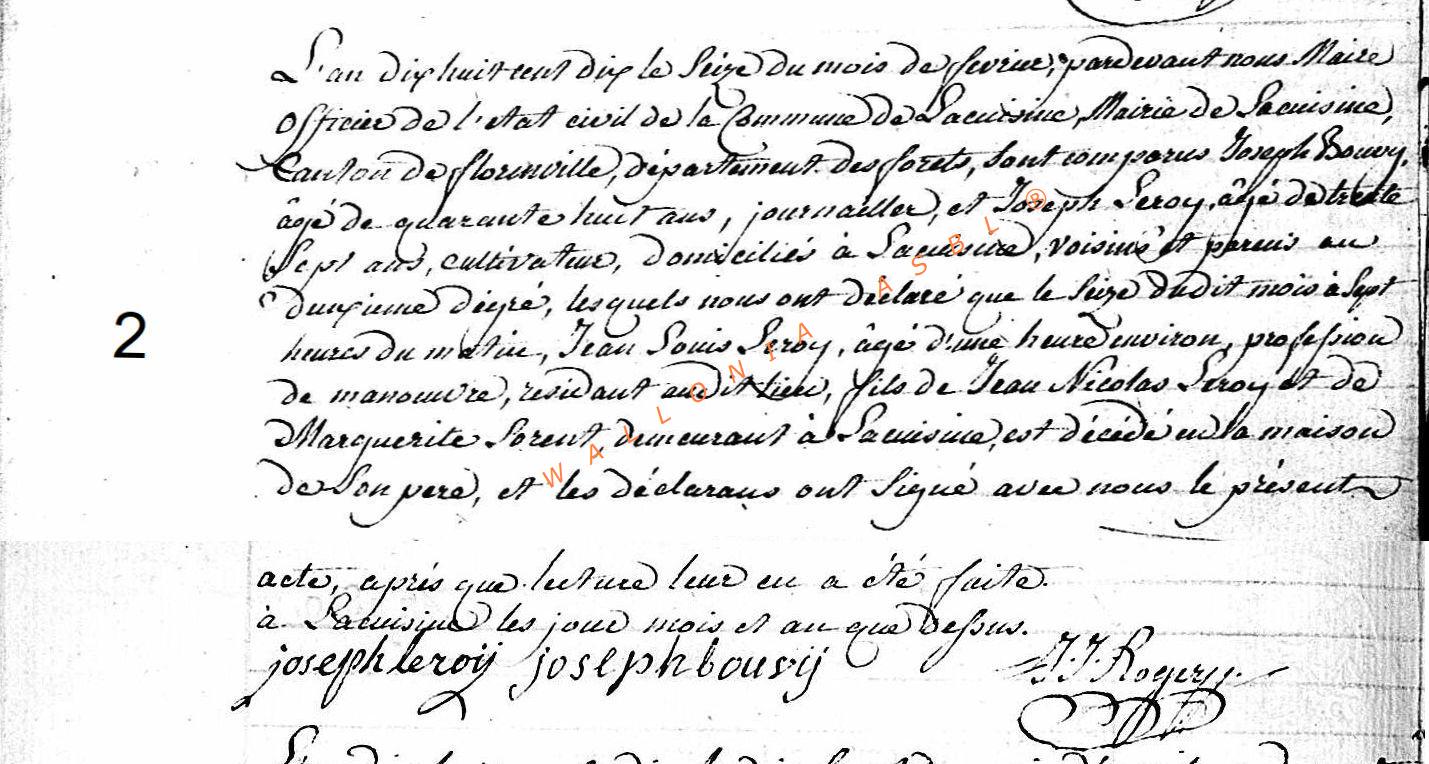 L'an dix huit cent dix le Seize du mois de fevrier, pardevant nous Maire
Officier de l'etat civil de la Commune de Lacuisine, Mairie de Lacuisine,
Canton de florenville, département des forets, sont comparus Joseph Bouvy,
âgé de quarante huit ans, journailler, et Joseph Leroy, âgé de trente
Sept ans, cultivateur, domiciliés à Lacuisine, voisins et parens au
2
deuxieme dégré, lesquels nous ont déclaré que le Seize dudit mois à Sept
heures du matin, Jean Louis Leroy, âgé d'une heure environ, profession
de manouvre, residant audit lieu, fils de Jean Nicolas Leroy et de
Marguerite Lorent, demeurant à Lacuisine, est décédé en la maison
de Son pere, et les déclarans ont Signé avec nous le présent
WALLONIA ASBL ®
acte, après que lecture leur en a été faite.
à Lacuisine les jour mois et an que dessus.
joseph leroij josephbouvij J.J. Rogery